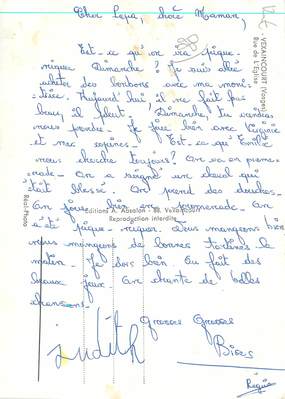 Cher Papa, chère Maman,
Est-ce qu'on ira pique-
niquer Dimanche? Je suis allée
acheter des bonbons avec ma moni-
trice. Aujourd'hui il ne fait pas
beau, il pleut. Dimanche, tu viendras
nous prendre. Je joue bien avec Virginie
et mes copines. Est-ce qu'Emilie
nous cherche toujours? On va en prome-
nade. On a soigné un cheval qui
était blessé. On prend des douches.
On joue bien en promenade. On
a été pique-niquer. Nous mangeons bien
nous mangeons de bonnes tartines le
matin. Je dors bien. On fait des
beaux jeux. On chante de belles
chansons.
Grosses Grosses
Bises
Judith
VEXAINCOURT (Vosges)
Rue de l'Eglise
Réal-Photo
Editions A. Absalon - 88.
Reproduction interdite